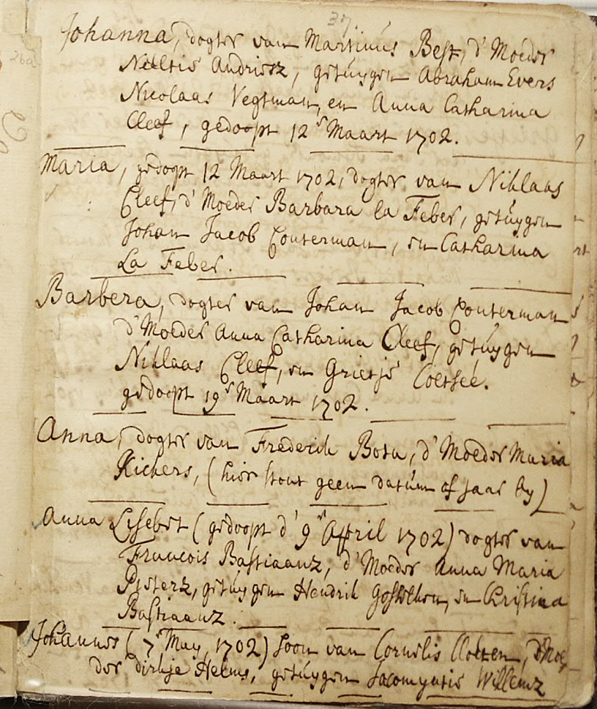 37
Johanna, dogter van Martinus Best, d'Moeder
Neeltie Andriesz, getuygen Abraham Evers
Nicolaas Vegtman, en Anna Catharina
Cleef, gedoopt 12 Maart 1702.
Maria, gedoopt 12 Maart 1702, dogter van Niklaas
Cleef, d'Moeder Barbara la Feber, getuygen
Johan Jacob Couterman, en Catharina
La Feber.
Barbera, dogter van Johan Jacob Couterman
d'Moeder Anna Catharina Cleef, getuygen
Niklaas Cleef, en Grietje Coetsée.
gedoopt 19 Maart 1702.
Anna, dogter van Frederik Bota, d'Moeder Maria
Kickers, (hier stont geen datum of jaar by)
Anna Lisebet (gedoopt d' 9 April 1702) dogter van
Francois Bastiaanz, d'Moeder Anna Maria
Pieterz, getuygen Hendrik en Kristina
Bastiaanz.
Johannes (7 May, 1702) soon van Cornelis d'Moe,
der Dirkje Helms, getuygen Willemz